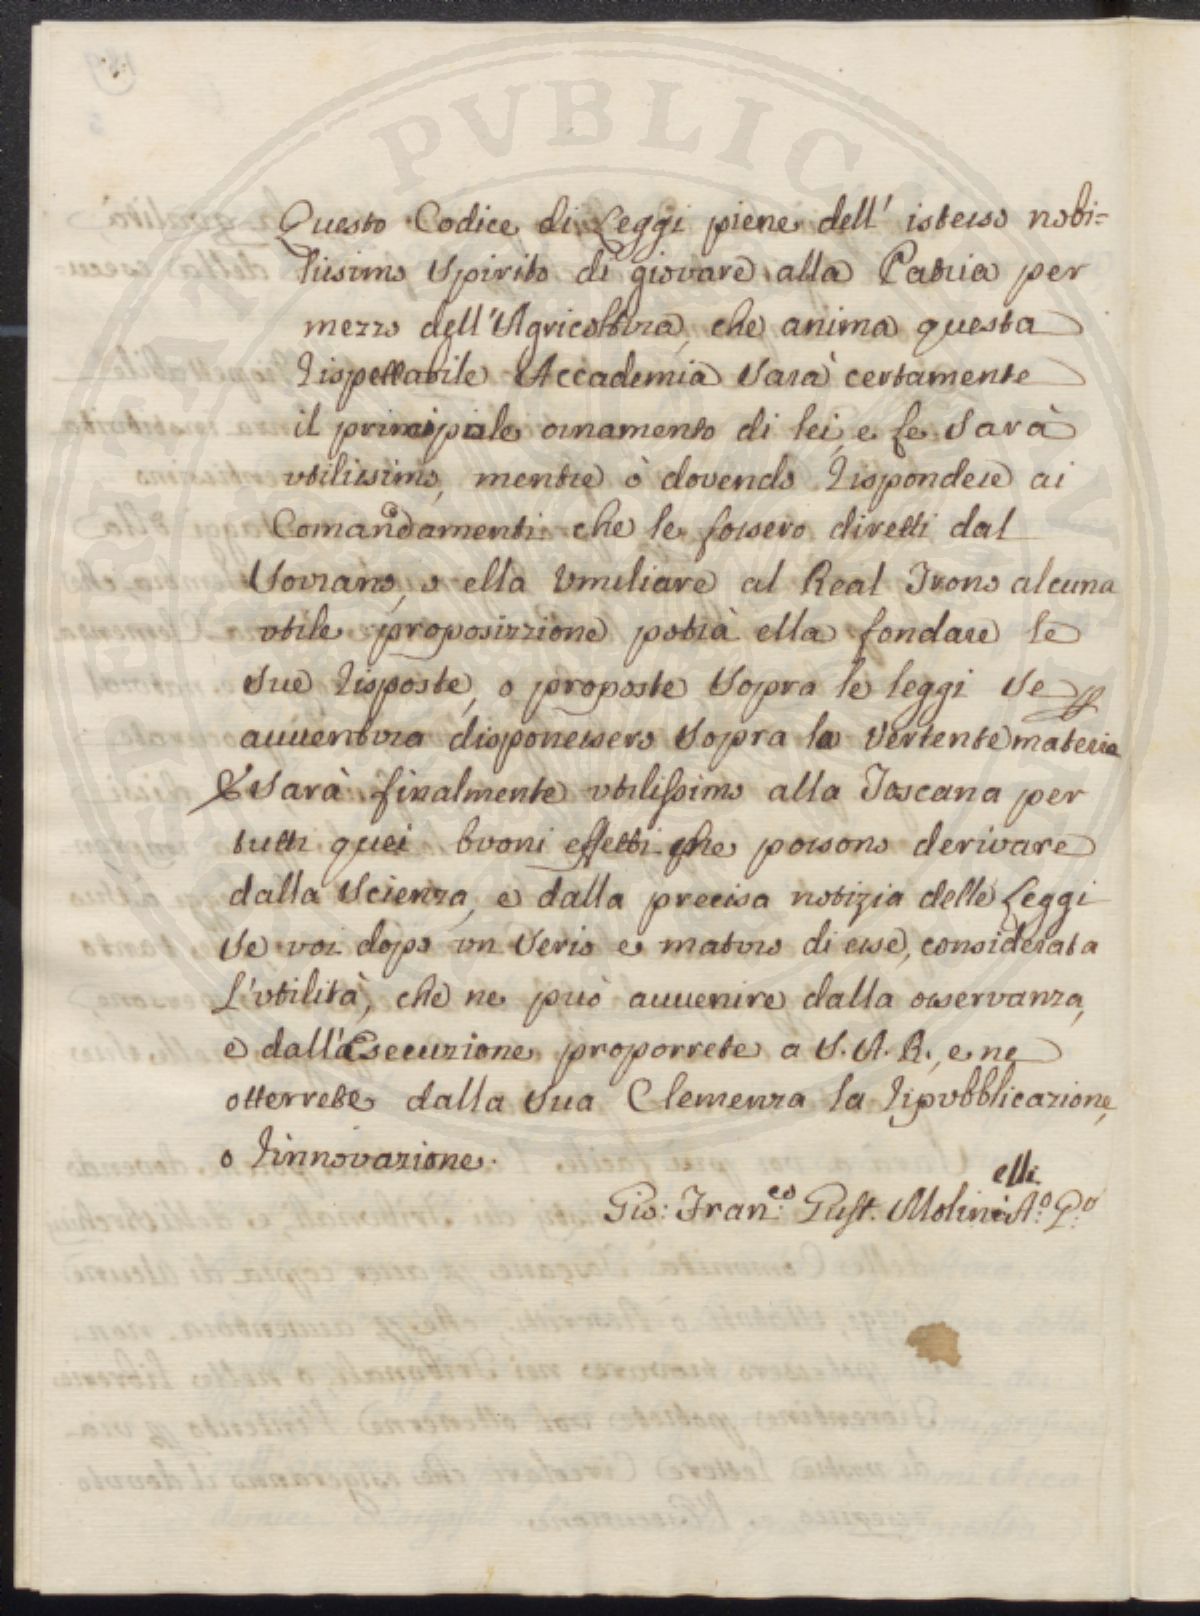 Questo Codice di Leggi piene dell' istesso nobi=
lissimo spirito di giovare alla Patria per
mezzo dell'Agricoltura, che anima questa
rispettabile Accademia sarà certamente
il principale ornamento di lei, e le sarà
utilissimo, mentre ò dovendo rispondere ai
Comandamenti che le fossero diretti dal
Sovrano, o ella umiliare al Real Trono alcuna
utile proposizzione potrà ella fondare le
sue risposte, o proposte sopra le leggi se
avventura disponessero sopra la vertente materia
E sarà finalmente utilissimo alla Toscana per
tutti quei buoni effetti che possono derivare
dalla scienza, e dalla precisa notizia delle Leggi
se voi dopo un serio e maturo di esse, considerata
L'utilità, che ne può avvenire dalla osservanza,
e dall'Esecuzione proporrete a S. A. R., e ne
otterrete dalla sua Clemenza la ripubblicazione,
o rinnovazione.
Gio: Fran.co Gust. Molinelli A.o P.o